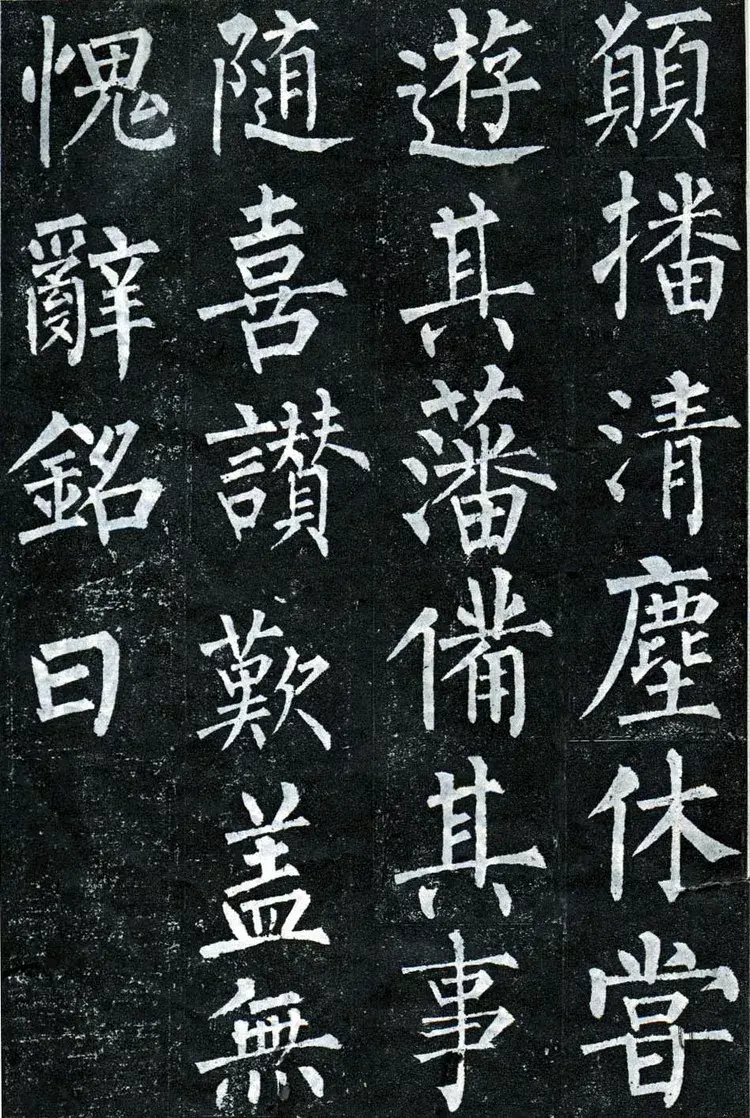 願播清塵休嘗
遊其藩備其事
隨喜讃歎盖無
愧辭銘曰